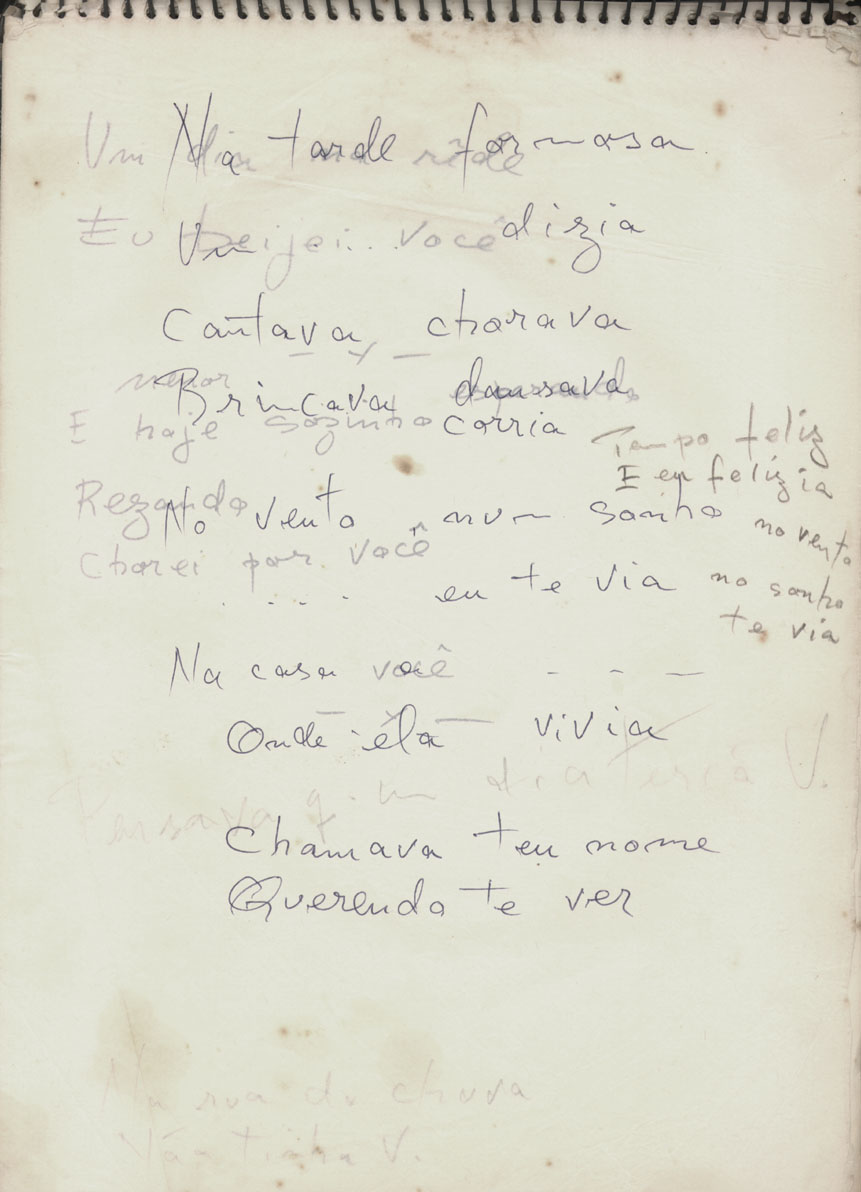 Na tarde formosa
Um dia
Eu beijei... você
Um dizia
Cantava, chorava
Brincava, dansava
E hoje sozinho
corria
Tempo feliz
E eu feliz ia
no vento
no sonho
te via
Rezando
Chorei por você
No vento num sonho
.... eu te via
Na casa você - - -
Onde ela vivia
Pensava q. um dia teria V.
Chamava teu nome
Querendo te ver
Na rua da chuva
Não tinha V.